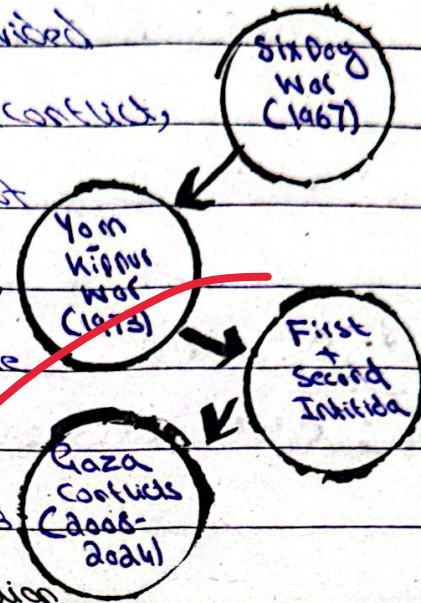 Six Day
War
(1967)
conflict,
Yom
Kippur
War
(1973)
First
+
Second
Intifida
Gaza
Conflicts
(2008-
2024)